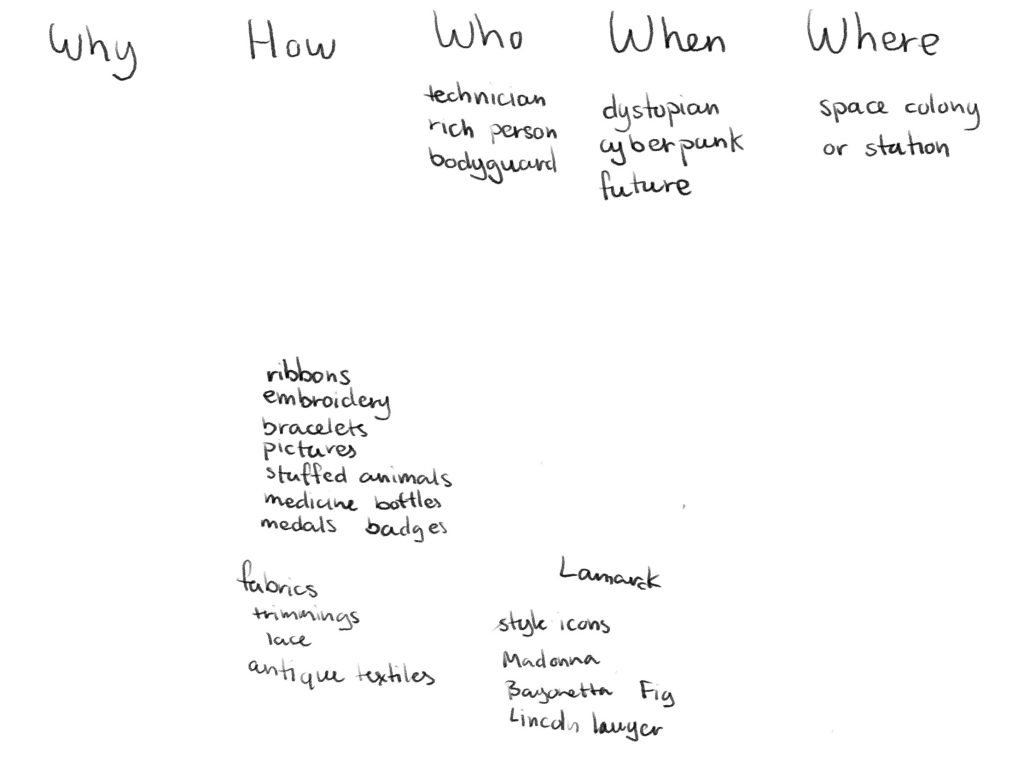 Why How Who When Where
technician
rich person
bodyguard
dystopian
cyberpunk
future
space colony
or station
ribbons
embroidery
bracelets
pictures
stuffed animals
medicine bottles
medals badges
fabrics
trimmings
lace
antique textiles
Lamarck
style icons
Madonna
Bayonetta Fig
Lincoln lawyer